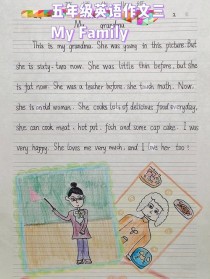 五年级英语作文三
My Family
My grandma
This is my grandma. She was young in this picture. But
she is sixty-two now. She was little thin before, but she
is fat now. She was a teacher before. she taught math. Now.
she is an old woman. She cooks lots of delicious food everyday.
she can cook meat, hot pot, fish and some cup cake. I was
very happy. She loves me very much, and I love her too!